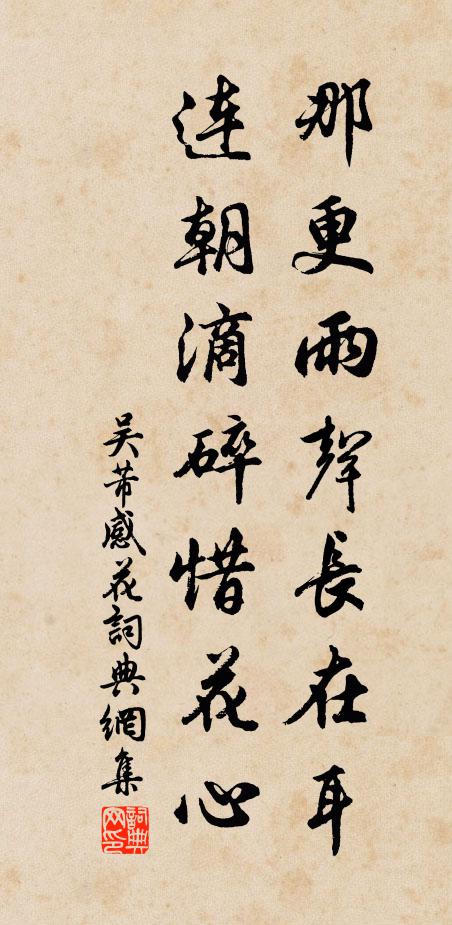 那更雨聲長在耳
連朝滴碎惜花心
吴芾感花詞典網集
詞典網印